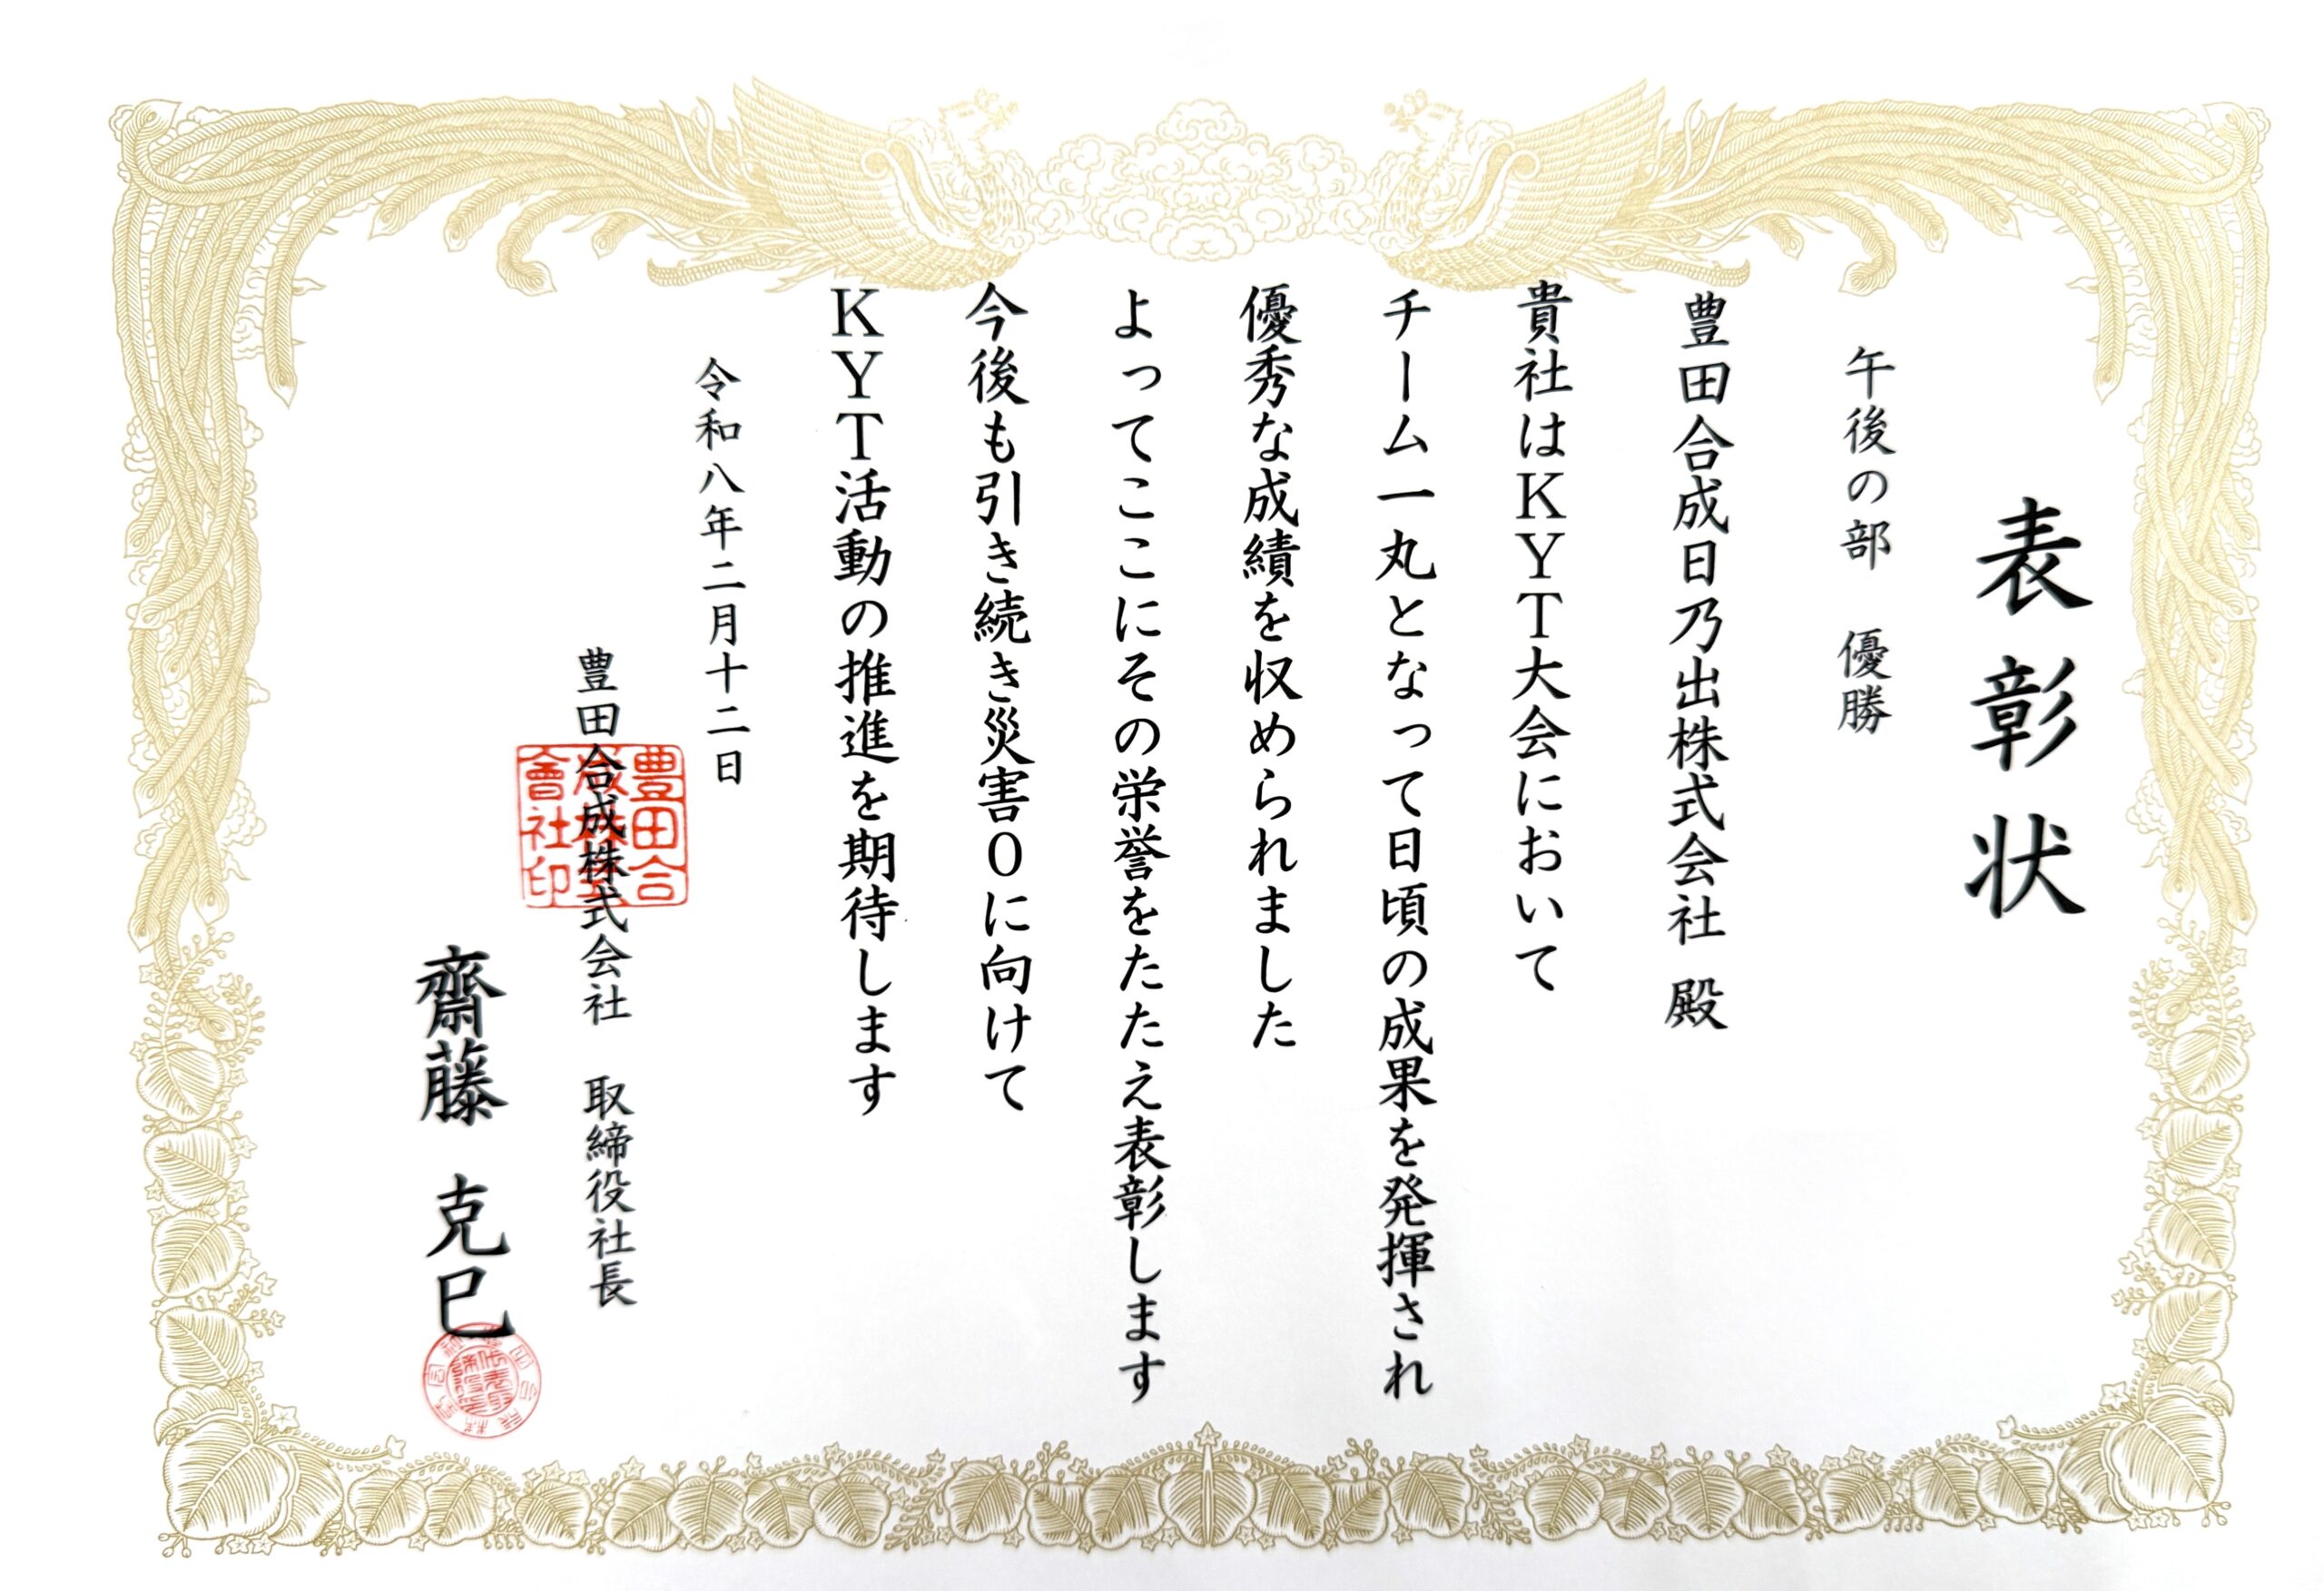 表彰状
午後の部　優勝
豊田合成日乃出株式会社 殿
貴社はKYT大会において
チーム一丸となって日頃の成果を発揮され
優秀な成績を収められました
よってここにその栄誉をたたえ表彰します
今後も引き続き災害0に向けて
KYT活動の推進を期待します
令和八年二月十二日
豊田合成株式会社　取締役社長
齋藤 克巳
豊田合
成株式
會社印